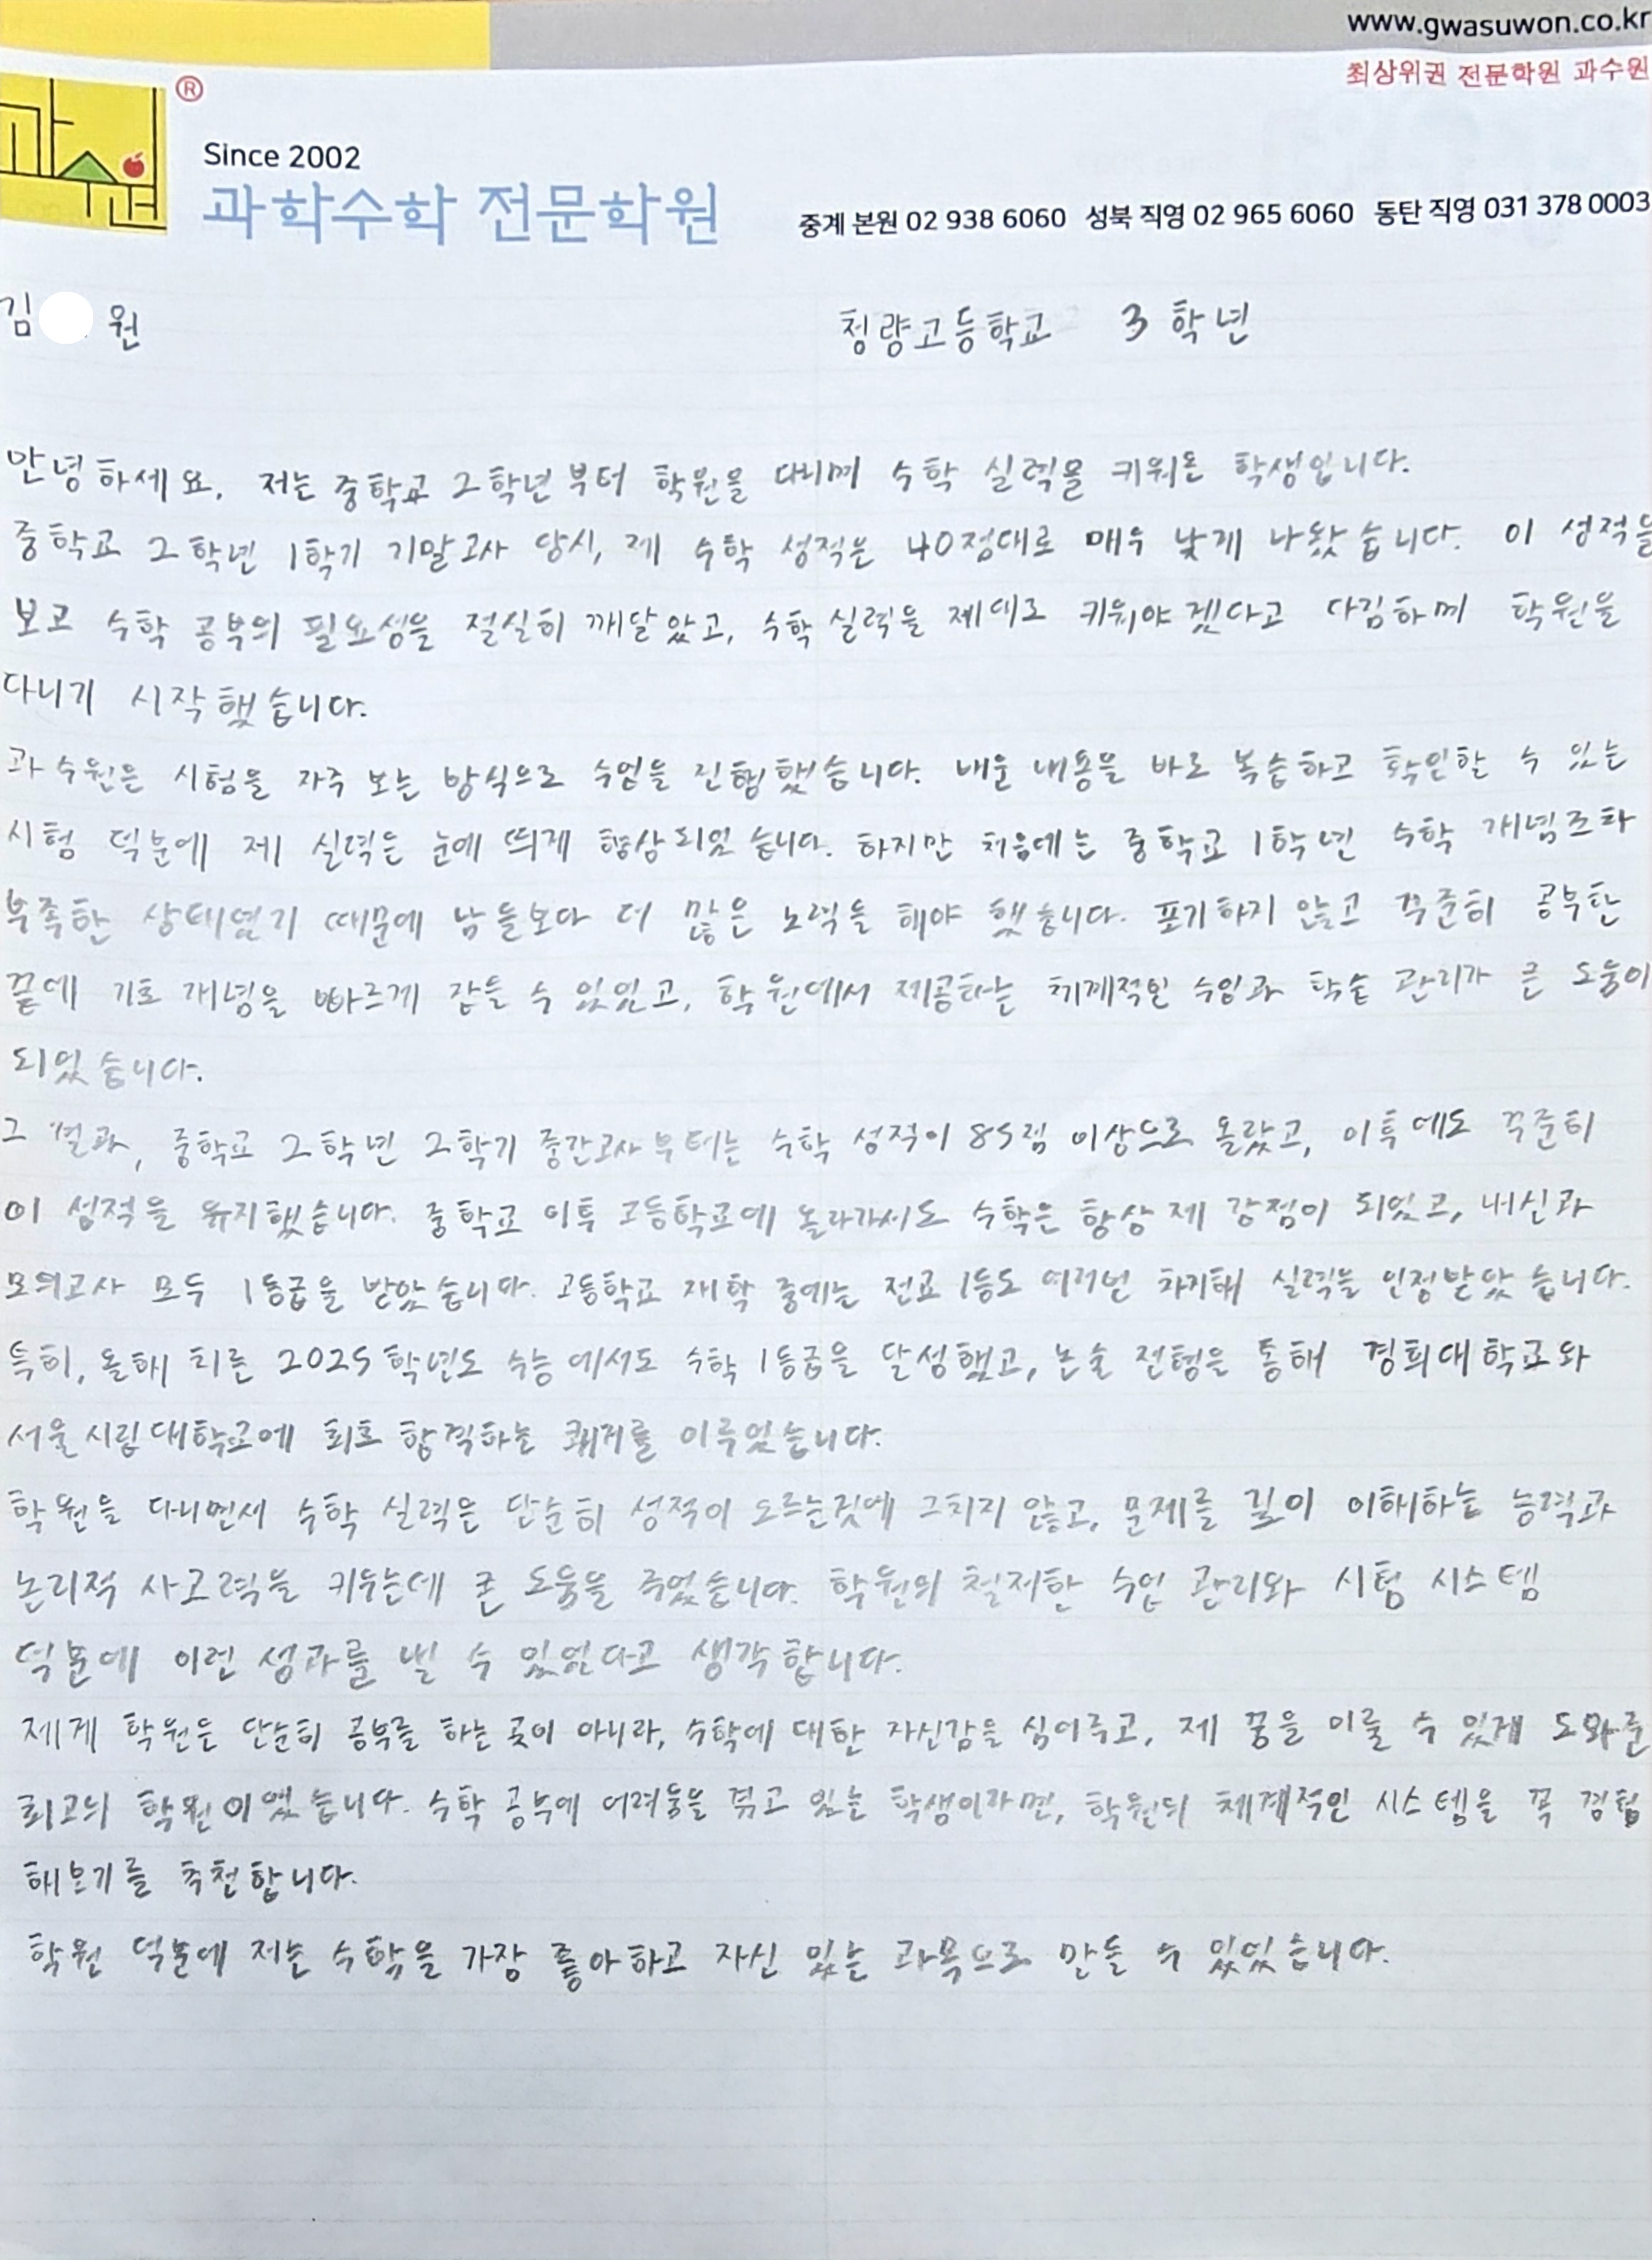 www.gwasuwon.co.kr
최상위권 전문학원 과수원
과수원
®
Since 2002
과학수학 전문학원
중계 본원 02 938 6060 성북 직영 02 965 6060 동탄 직영 031 378 0003
김 원 청량고등학교 3학년
안녕하세요. 저는 중학교 2학년부터 학원을 다니며 수학 실력을 키워온 학생입니다.
중학교 2학년 1학기 기말고사 당시, 제 수학 성적은 40점대로 매우 낮게 나왔습니다. 이 성적을
보고 수학 공부의 필요성을 절실히 깨달았고, 수학 실력을 제대로 키워야겠다고 다짐하며 학원을
다니기 시작했습니다.
과수원은 시험을 자주 보는 방식으로 수업을 진행했습니다. 배운 내용을 바로 복습하고 확인할 수 있는
시험 덕분에 제 실력은 눈에 띄게 향상되었습니다. 하지만 처음에는 중학교 1학년 수학 개념조차
부족한 상태였기 때문에 남들보다 더 많은 노력을 해야 했습니다. 포기하지 않고 꾸준히 공부한
끝에 기초 개념을 빠르게 잡을 수 있었고, 학원에서 제공하는 체계적인 수업과 학습 관리가 큰 도움이
되었습니다.
그 결과, 중학교 2학년 2학기 중간고사부터는 수학 성적이 85점 이상으로 올랐고, 이후에도 꾸준히
이 성적을 유지했습니다. 중학교 이후 고등학교에 올라가서도 수학은 항상 제 강점이 되었고, 내신과
모의고사 모두 1등급을 받았습니다. 고등학교 재학 중에는 전교 1등도 여러번 차지해 실력을 인정받았습니다.
특히, 올해 치른 2025학년도 수능에서도 수학 1등급을 달성했고, 논술 전형을 통해 경희대학교와
서울시립대학교에 최초 합격하는 쾌거를 이루었습니다.
학원을 다니면서 수학 실력은 단순히 성적이 오르는것에 그치지 않고, 문제를 깊이 이해하는 능력과
논리적 사고력을 키우는데 큰 도움을 주었습니다. 학원의 철저한 수업 관리와 시험 시스템
덕분에 이런 성과를 낼 수 있었다고 생각합니다.
제게 학원은 단순히 공부를 하는 곳이 아니라, 수학에 대한 자신감을 심어주고, 제 꿈을 이룰 수 있게 도와준
최고의 학원이었습니다. 수학 공부에 어려움을 겪고 있는 학생이라면, 학원의 체계적인 시스템을 꼭 경험
해보기를 추천합니다.
학원 덕분에 저는 수학을 가장 좋아하고 자신 있는 과목으로 만들 수 있었습니다.